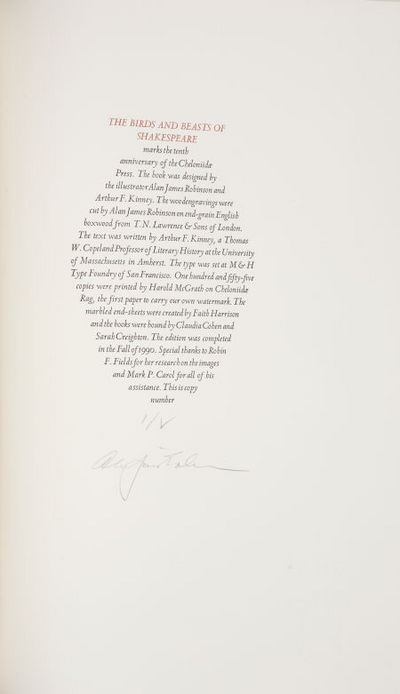 THE BIRDS AND BEASTS OF
SHAKESPEARE
marks the tenth
anniversary of the Cheloniidæ
Press. The book was designed by
the illustrator Alan James Robinson and
Arthur F. Kinney. The wood engravings were
cut by Alan James Robinson on end-grain English
boxwood from T. N. Lawrence & Sons of London.
The text was written by Arthur F. Kinney, a Thomas
W. Copeland Professor of Literary History at the University
of Massachusetts in Amherst. The type was set at M & H
Type Foundry of San Francisco. One hundred and fifty-five
copies were printed by Harold McGrath on Cheloniidæ
Rag, the first paper to carry our own watermark. The
marbled end-sheets were created by Faith Harrison
and the books were bound by Claudia Cohen and
Sarah Creighton. The edition was completed
in the Fall of 1990. Special thanks to Robin
F. Fields for her research on the images
and Mark P. Carol for all of his
assistance. This is copy
number
1/V